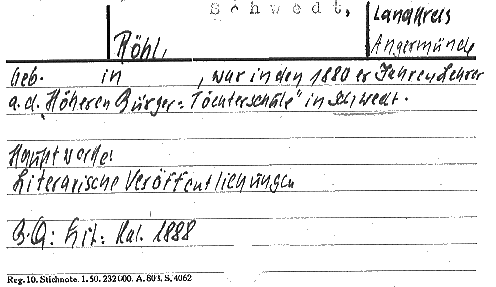 Schwedt,
Landkreis
Angermünde
Höhl,
Geb. in , war in den 1880er Jahren Lehrer
a.d. „Höheren Bürger-Töchterschule" in Schwedt.
Hauptwerke:
Literarische Veröffentlichungen
B.Q: Lit. Kal. 1888
Reg. 10. Stichnote. 1. 50. 232000. A. 803. S. 4062